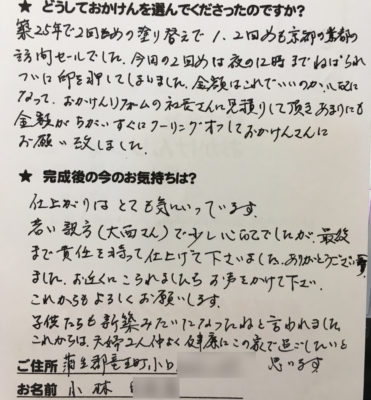 ★ どうしておかけんを選んでくださったのですか?
築25年で2回目の塗り替えで1、2回目も京都の業者の
訪問セールでした。今回の2回めは夜の12時までねばられ
ついに印を押してしまいました。金額はこれでいいのか心配に
なって、おかけんリフォームの社長さんに見積りして頂きあまりにも
金額がちがいすぐにクーリングオフしておかけんさんに
お願い致しました。
★ 完成後の今のお気持ちは?
仕上がりはとても気にいっています。
若い親方(大西さん)で少し心配でしたが、最後
まで責任を持って仕上げて下さいました。ありがとうござい
ました。お近くにこられましたらお声をかけて下さい。
これからもよろしくお願いします。
子供たちも新築みたいになったねと言われました。
これからは、夫婦2人仲よく健康にこの家で過ごしたいと
思います
ご住所 蒲生郡竜王町小口
お名前 小林